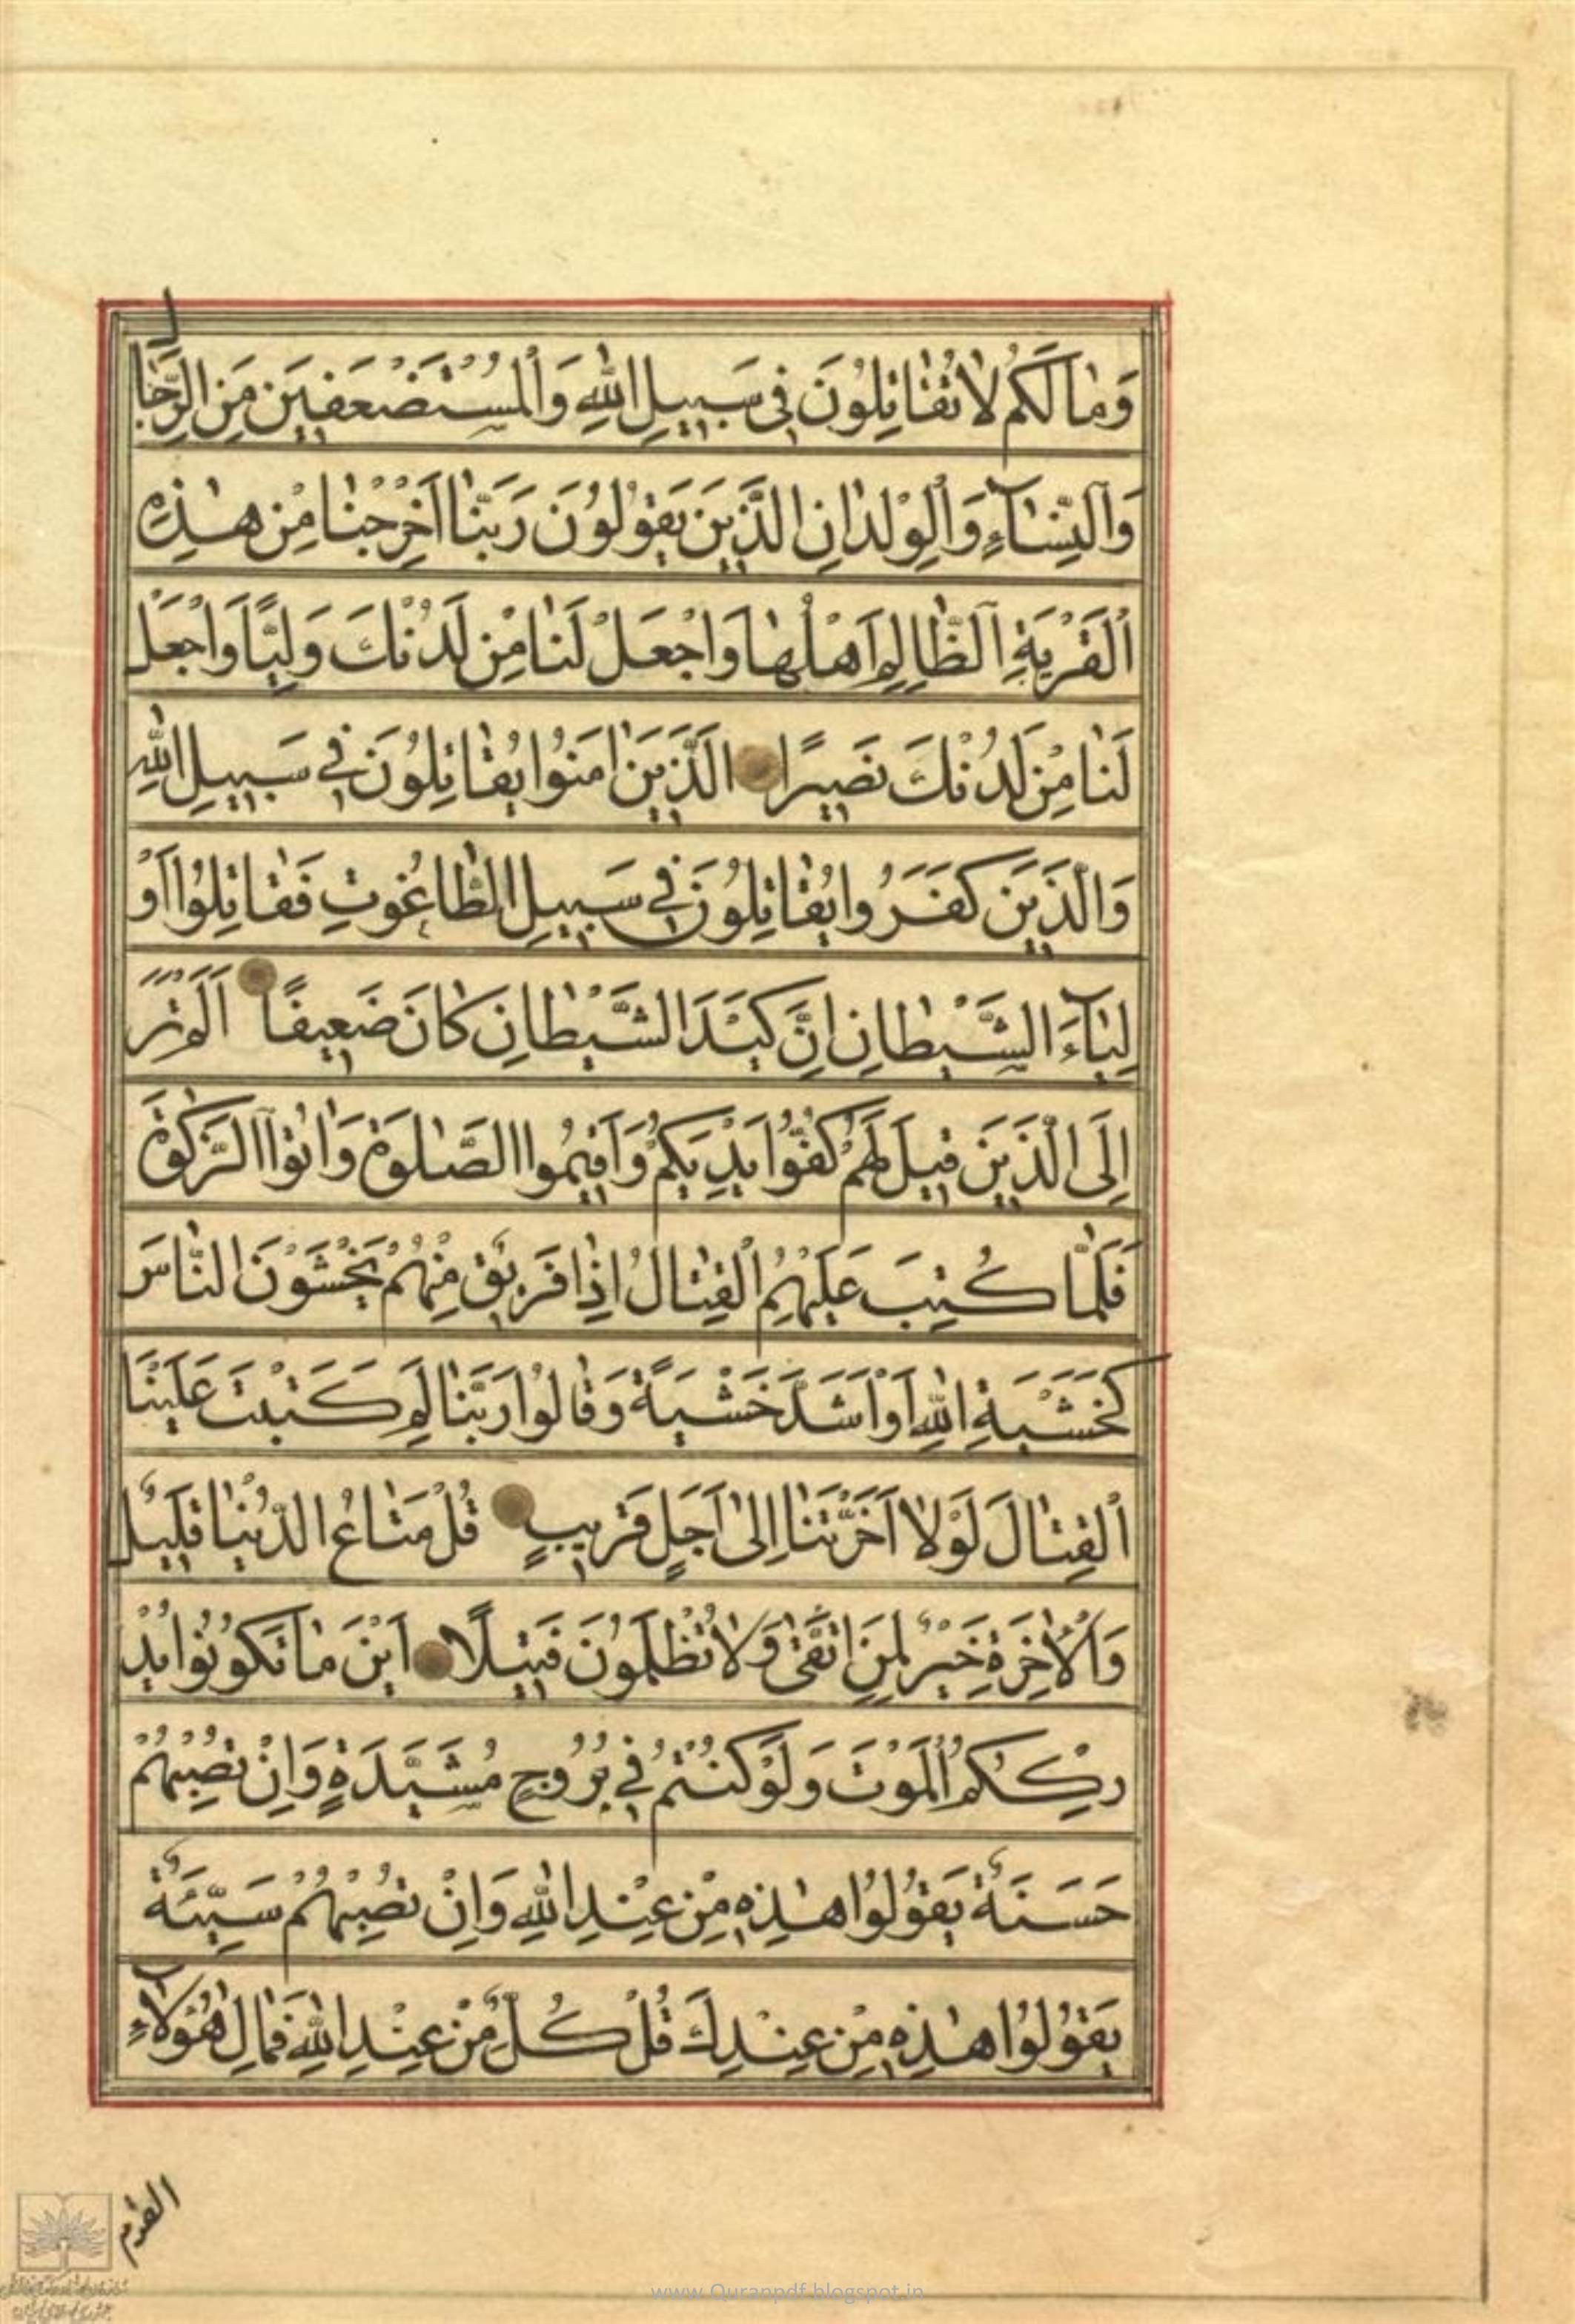 وَمٰا لَكُمْ لاٰ تُقٰاتِلُونَ فِي سَبِيلِ اللّٰهِ وَالْمُسْتَضْعَفِينَ مِنَ الرِّجٰالِ
وَالنِّسٰاۤءِ وَالْوِلْدٰانِ الَّذِينَ يَقُولُونَ رَبَّنٰا اَخْرِجْنٰا مِنْ هٰذِهِ
الْقَرْيَةِ الظّٰالِمِ اَهْلُهٰا وَاجْعَلْ لَنٰا مِنْ لَدُنْكَ وَلِيًّا وَاجْعَلْ
لَنٰا مِنْ لَدُنْكَ نَصِيرًا الَّذِينَ اٰمَنُوا يُقٰاتِلُونَ فِي سَبِيلِ اللّٰهِ
وَالَّذِينَ كَفَرُوا يُقٰاتِلُونَ فِي سَبِيلِ الطّٰاغُوتِ فَقٰاتِلُوا اَوْ
لِيٰاۤءَ الشَّيْطٰانِ اِنَّ كَيْدَ الشَّيْطٰانِ كٰانَ ضَعِيفًا اَلَمْ تَرَ
اِلَى الَّذِينَ قِيلَ لَهُمْ كُفُّوا اَيْدِيَكُمْ وَاَقِيمُوا الصَّلٰوةَ وَاٰتُوا الزَّكٰوةَ
فَلَمّٰا كُتِبَ عَلَيْهِمُ الْقِتٰالُ اِذٰا فَرِيقٌ مِنْهُمْ يَخْشَوْنَ النّٰاسَ
كَخَشْيَةِ اللّٰهِ اَوْ اَشَدَّ خَشْيَةً وَقٰالُوا رَبَّنٰا لِمَ كَتَبْتَ عَلَيْنَا
الْقِتٰالَ لَوْلاٰ اَخَّرْتَنٰا اِلىٰ اَجَلٍ قَرِيبٍ قُلْ مَتٰاعُ الدُّنْيٰا قَلِيلٌ
وَالْاٰخِرَةُ خَيْرٌ لِمَنِ اتَّقىٰ وَلاٰ تُظْلَمُونَ فَتِيلًا اَيْنَ مٰا تَكُونُوا يُدْ
رِكْكُمُ الْمَوْتُ وَلَوْ كُنْتُمْ فِي بُرُوجٍ مُشَيَّدَةٍ وَاِنْ تُصِبْهُمْ
حَسَنَةٌ يَقُولُوا هٰذِهِ مِنْ عِنْدِ اللّٰهِ وَاِنْ تُصِبْهُمْ سَيِّئَةٌ
يَقُولُوا هٰذِهِ مِنْ عِنْدِكَ قُلْ كُلٌّ مِنْ عِنْدِ اللّٰهِ فَمٰالِ هٰؤُلاٰۤءِ
القوم
www.Quranpdf.blogspot.in